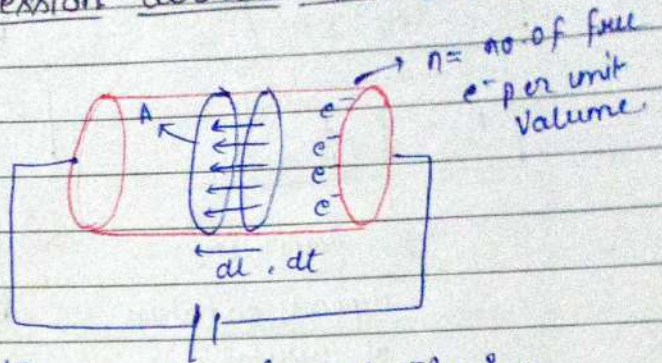 n = no. of free
e⁻ per unit
Valume.
A
e⁻
e⁻
e⁻
e⁻
dl, dt